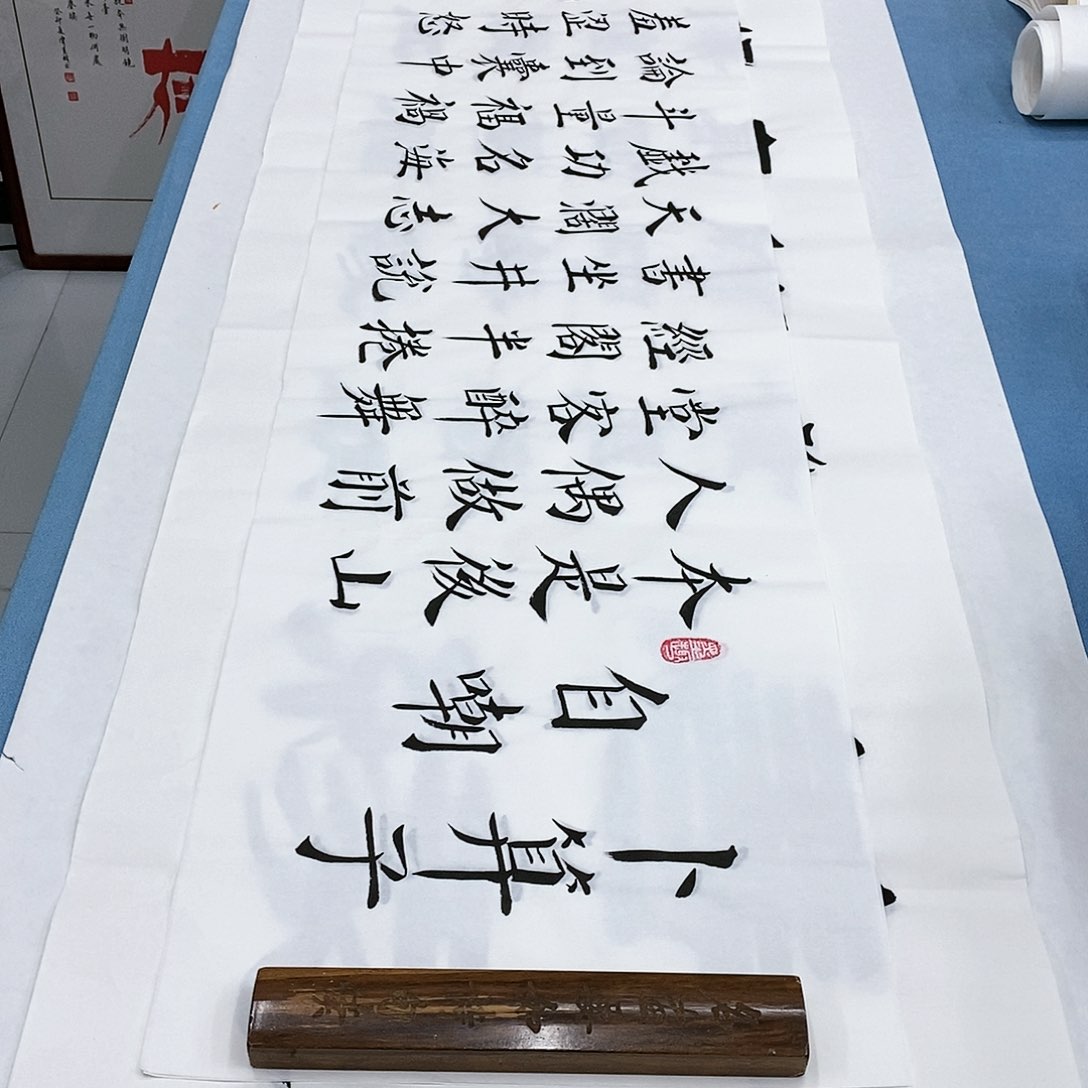 卜算子
自嘲
本是後山
人偶做前
堂客醉舞
經閣半捲
書坐井說
天闊大志
戲功名海
斗量福禍
論到囊中
羞澀時怒